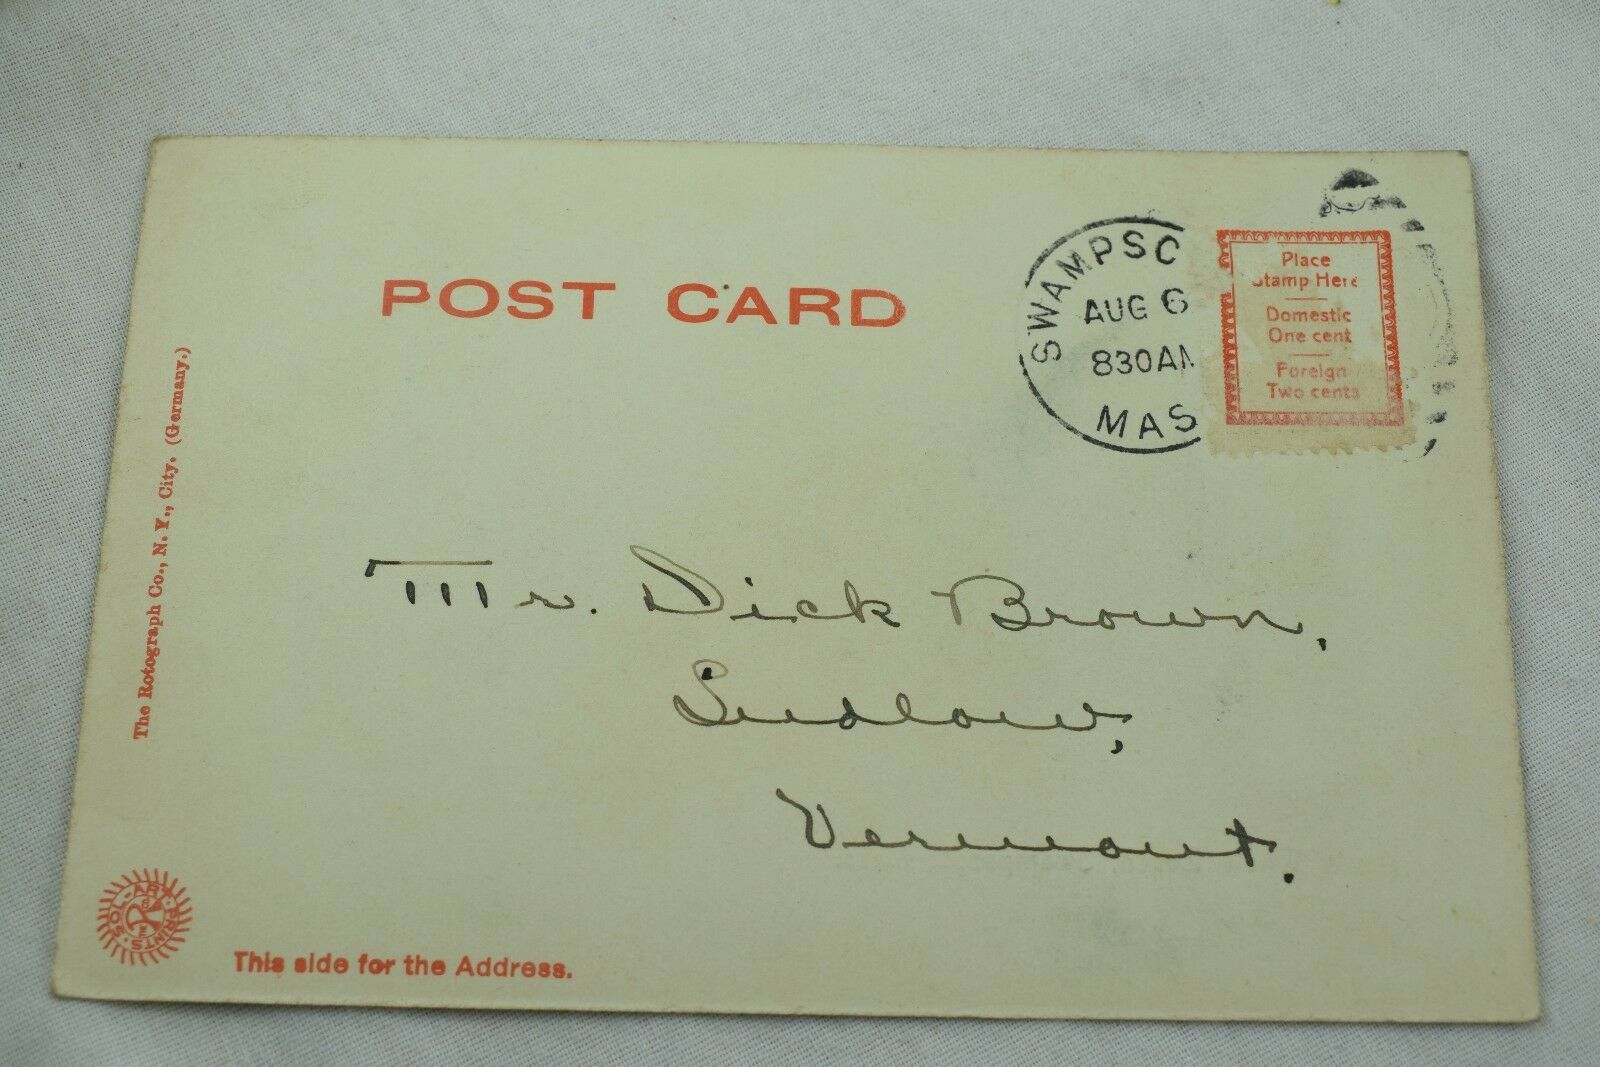 POST CARD
SWAMPSC
AUG 6
830AM
MAS
Place
Stamp Here
Domestic
One cent
Foreign
Two cents
Mr. Dick Brown,
Ludlow,
Vermont.
The Rotograph Co., N. Y., City. (Germany.)
SOL-ART PRINTS
This side for the Address.